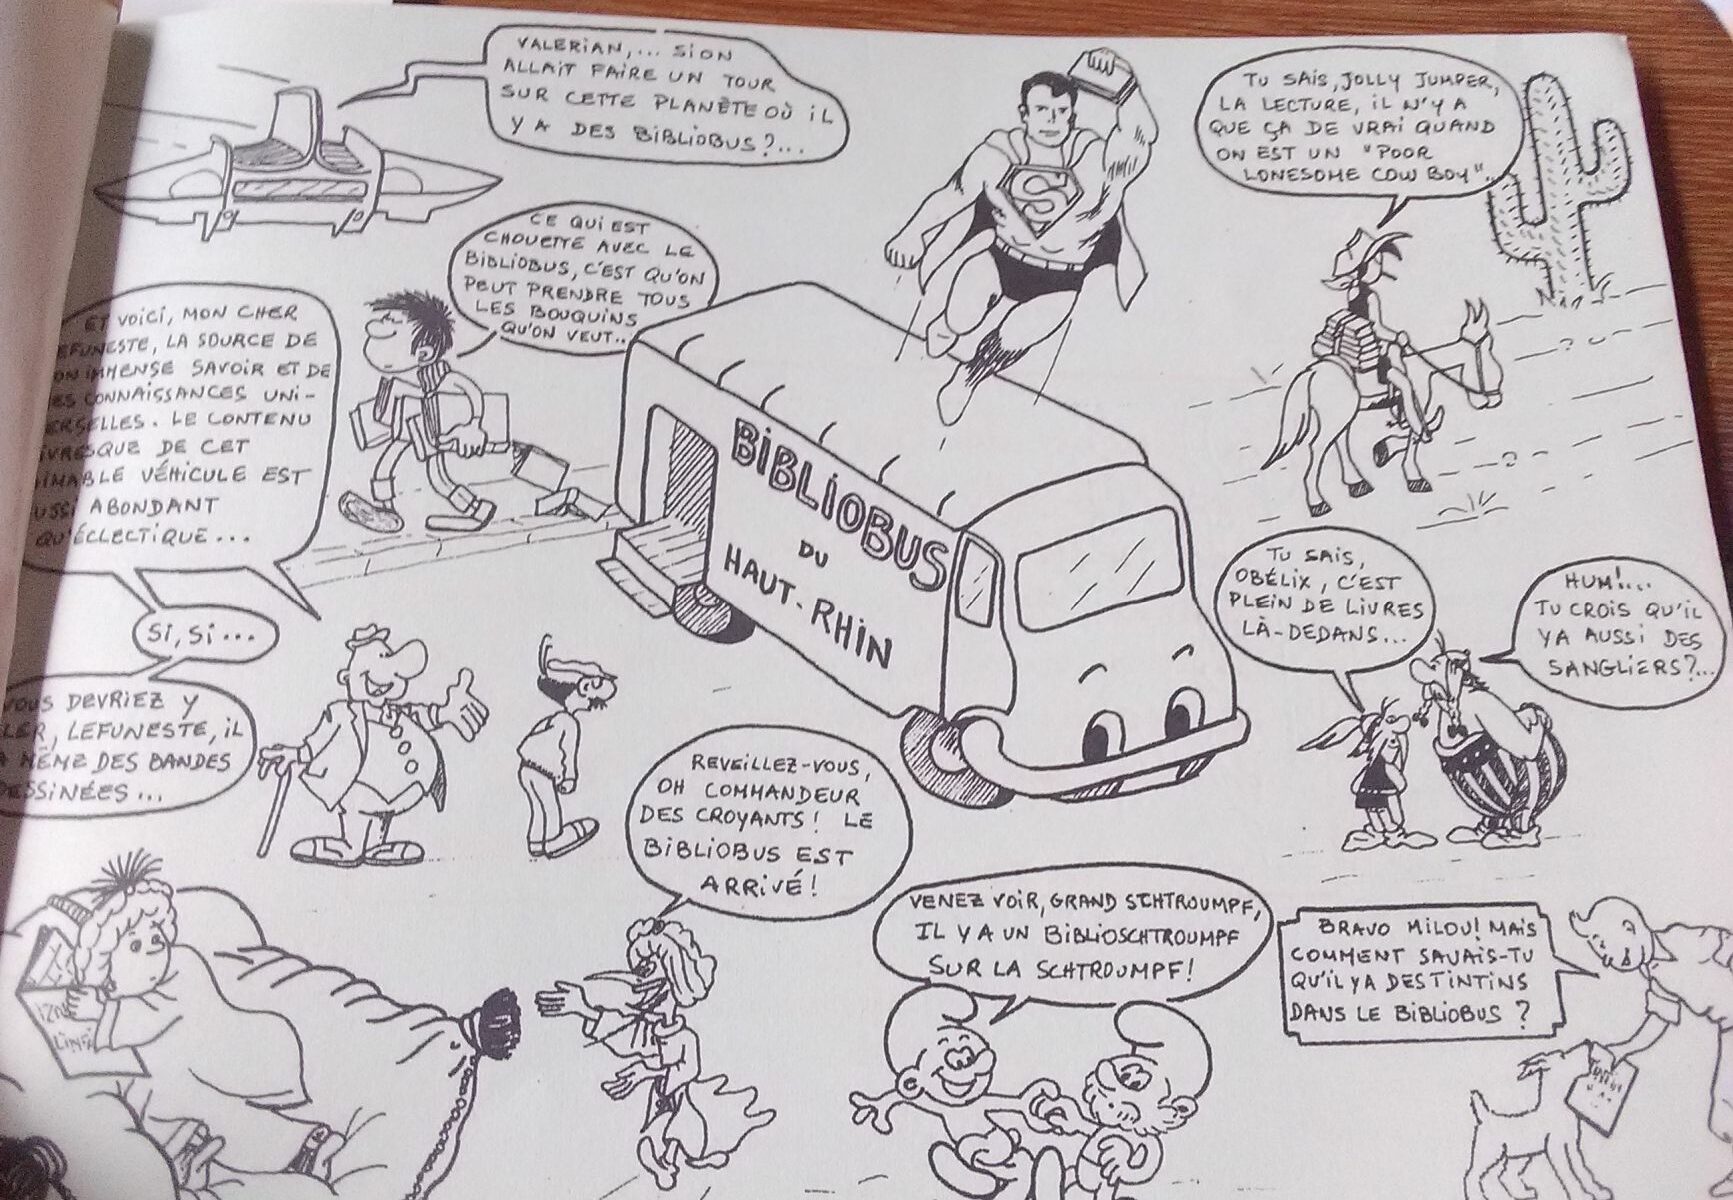 VALERIAN,... SI ON
ALLAIT FAIRE UN TOUR
SUR CETTE PLANÈTE OÙ IL
Y A DES BIBLIOBUS?...
TU SAIS, JOLLY JUMPER,
LA LECTURE, IL N'Y A
QUE ÇA DE VRAI QUAND
ON EST UN "POOR
LONESOME COW BOY"...
CE QUI EST
CHOUETTE AVEC LE
BIBLIOBUS, C'EST QU'ON
PEUT PRENDRE TOUS
LES BOUQUINS
QU'ON VEUT..
S
ET VOICI, MON CHER
EFUNESTE, LA SOURCE DE
ON IMMENSE SAVOIR ET DE
ES CONNAISSANCES UNI-
ERSELLES. LE CONTENU
IVRESQUE DE CET
IMABLE VÉHICULE EST
USSI ABONDANT
QU'ÉCLECTIQUE...
SI, SI...
VOUS DEVRIEZ Y
LER, LEFUNESTE, IL
A MÊME DES BANDES
DESSINÉES...
BIBLIOBUS
DU
HAUT-RHIN
TU SAIS,
OBÉLIX, C'EST
PLEIN DE LIVRES
LÀ-DEDANS...
HUM!...
TU CROIS QU'IL
Y A AUSSI DES
SANGLIERS?...
REVEILLEZ-VOUS,
OH COMMANDEUR
DES CROYANTS! LE
BIBLIOBUS EST
ARRIVÉ!
VENEZ VOIR, GRAND SCHTROUMPF,
IL Y A UN BIBLIOSCHTROUMPF
SUR LA SCHTROUMPF!
BRAVO MILOU! MAIS
COMMENT SAVAIS-TU
QU'IL Y A DES TINTINS
DANS LE BIBLIOBUS ?